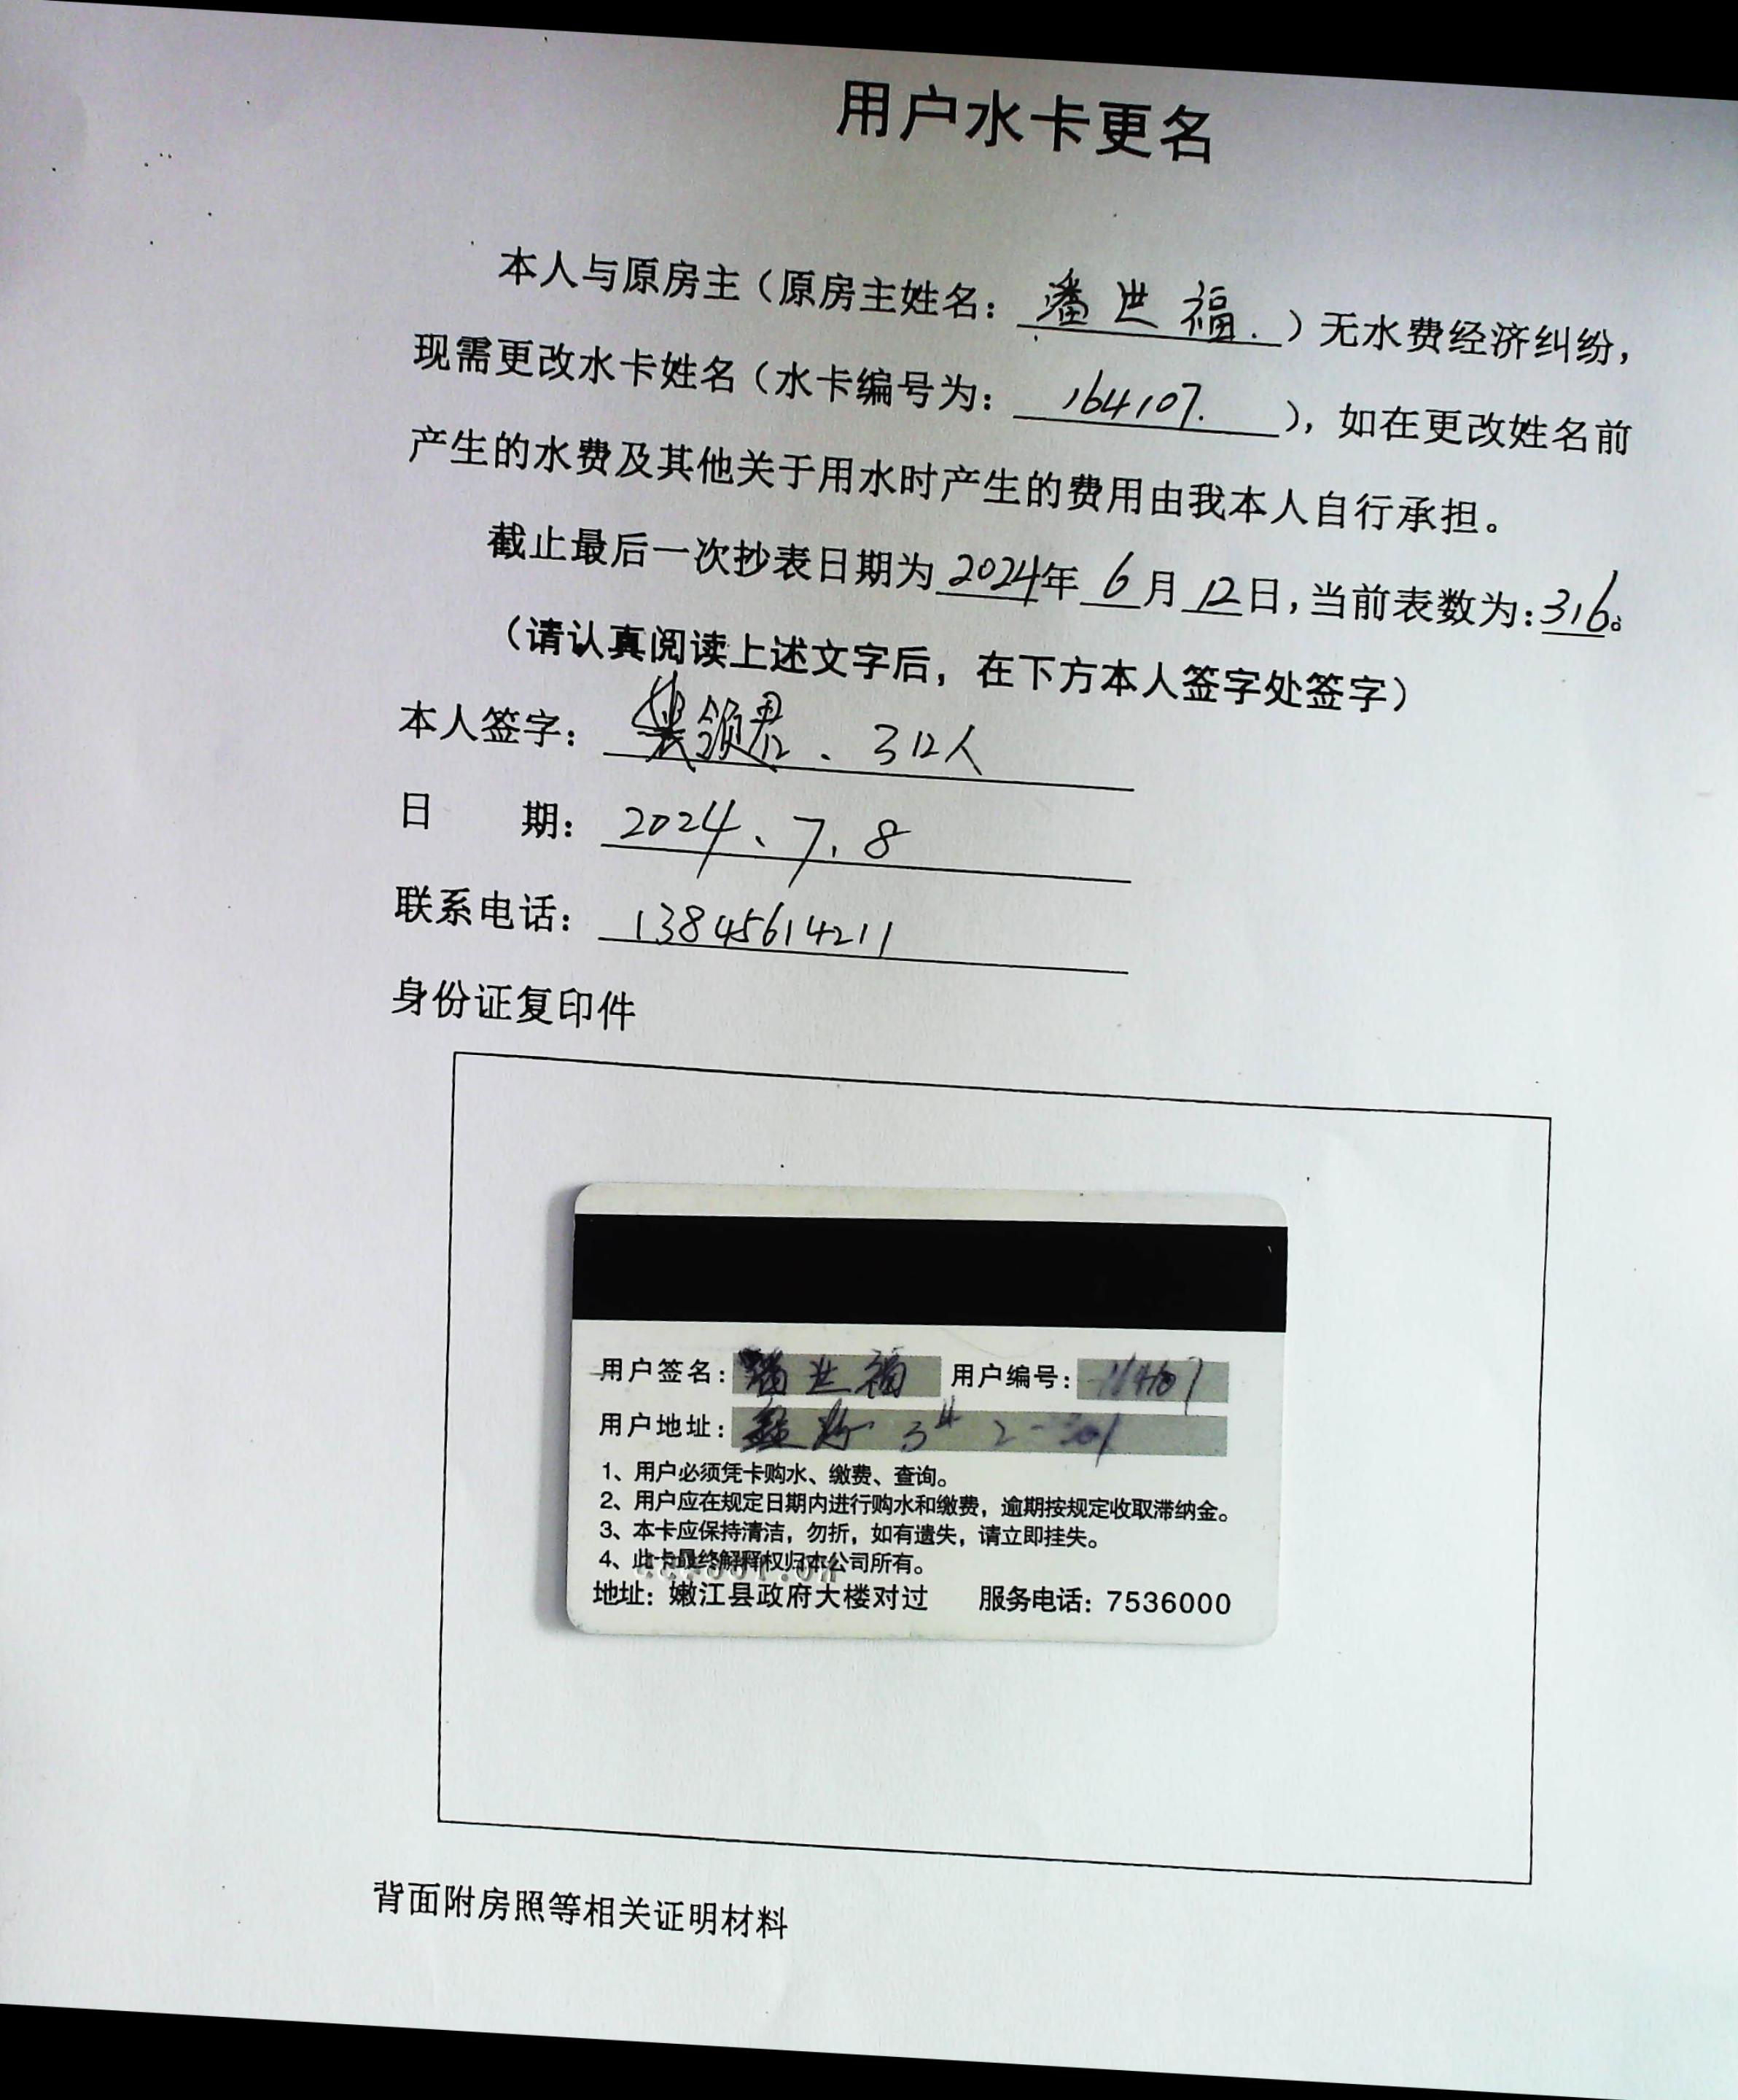 用户水卡更名
本人与原房主（原房主姓名：潘世福.）无水费经济纠纷，
现需更改水卡姓名（水卡编号为：164107.），如在更改姓名前
产生的水费及其他关于用水时产生的费用由我本人自行承担。
截止最后一次抄表日期为2024年6月12日，当前表数为：316。
（请认真阅读上述文字后，在下方本人签字处签字）
本人签字：领君、312人
日期：2024、7、8
联系电话：13845614211
身份证复印件
用户签名：潘世福 用户编号：
用户地址：3# 2-301
1、用户必须凭卡购水、缴费、查询。
2、用户应在规定日期内进行购水和缴费，逾期按规定收取滞纳金。
3、本卡应保持清洁，勿折，如有遗失，请立即挂失。
4、此卡最终解释权归本公司所有。
地址：嫩江县政府大楼对过 服务电话：7536000
背面附房照等相关证明材料